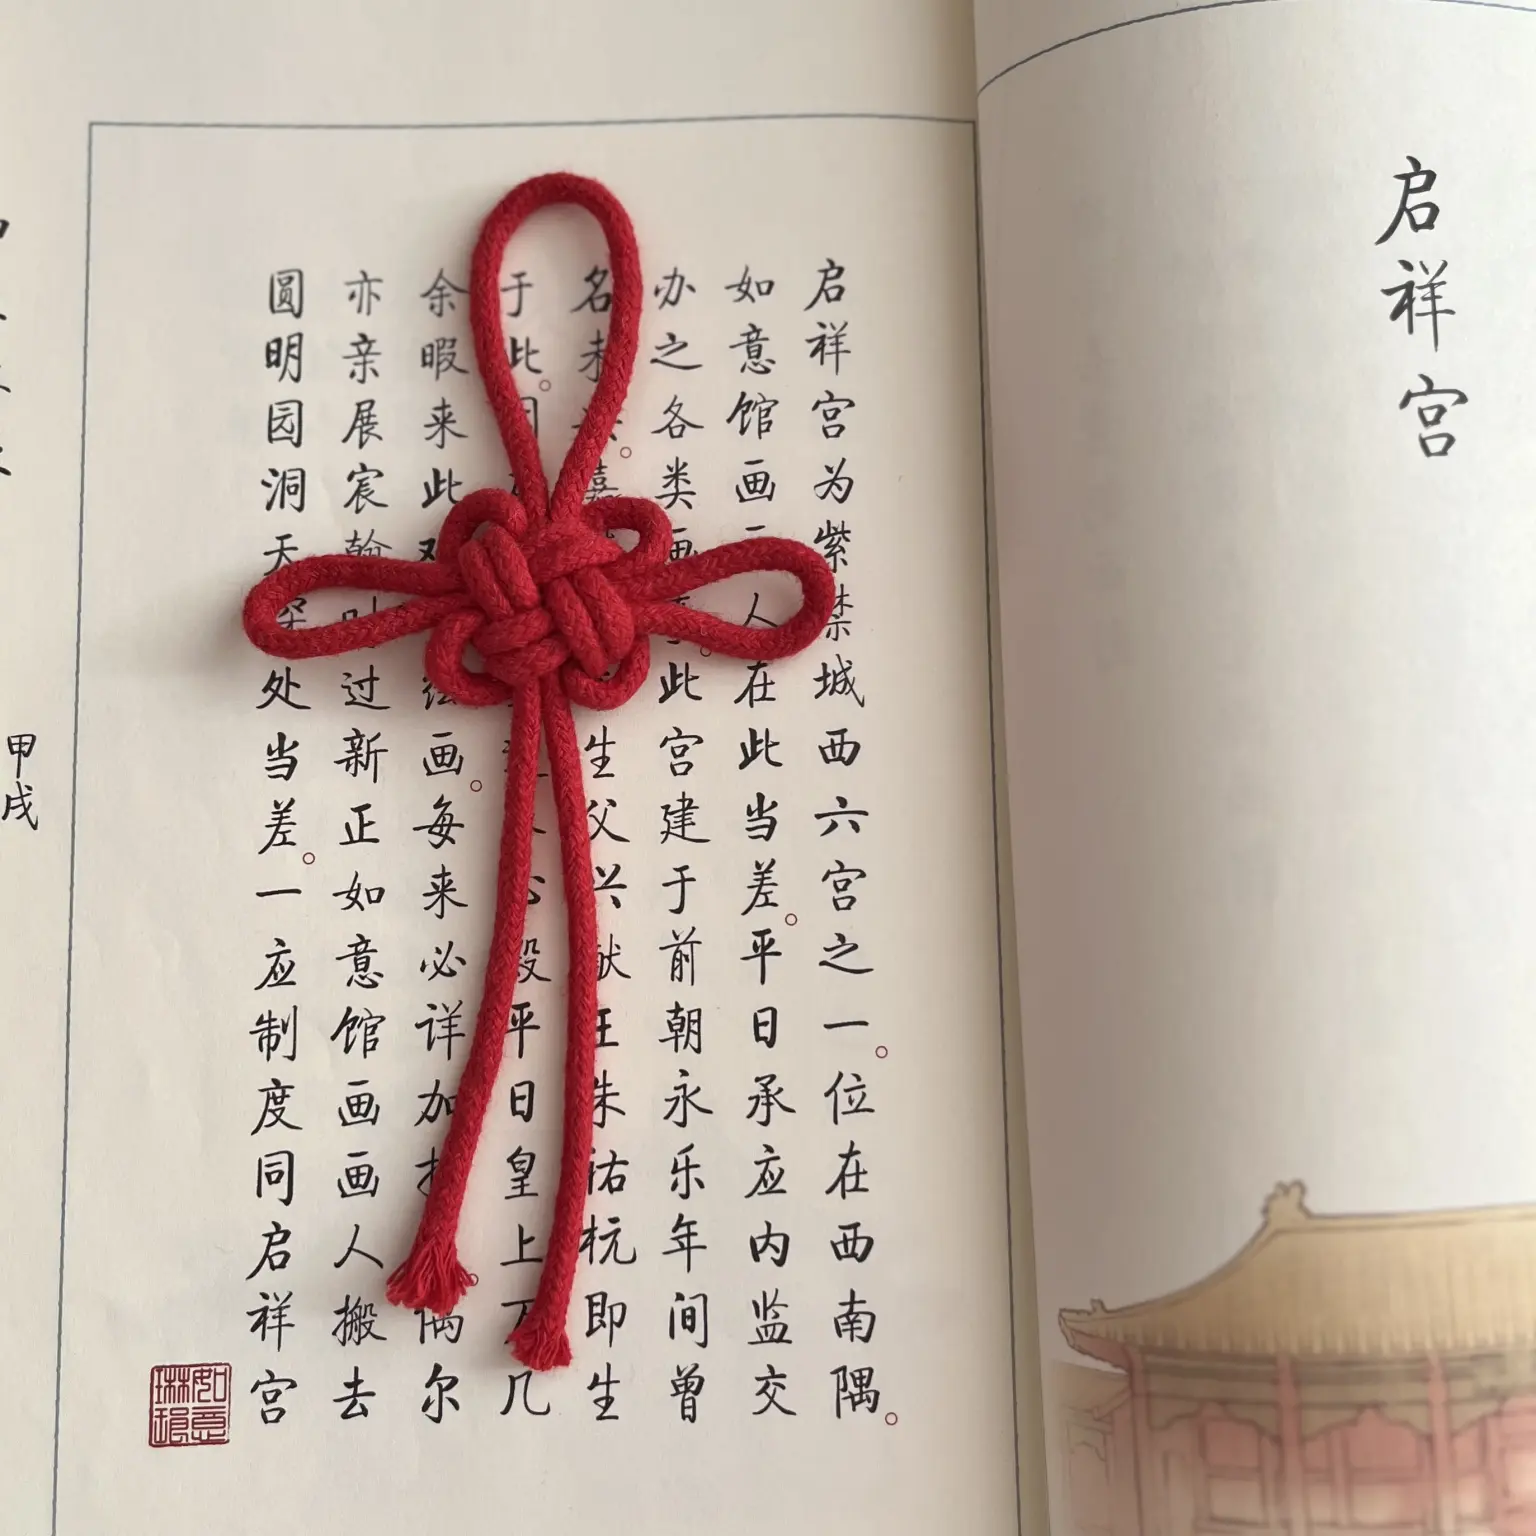 启祥宫
启祥宫为紫禁城西六宫之一。位在西南隅。
如意馆画人在此当差。平日承应内监交
办之各类画。此宫建于前朝永乐年间曾
名未。嘉生父兴献王朱祐杬即生
于此。殿平日皇上几
余暇来此绘画。每来必详加。偶尔
亦亲展宸翰过新正如意馆画画人搬去
圆明园洞天深处当差。一应制度同启祥宫
如意琳琅
甲戌